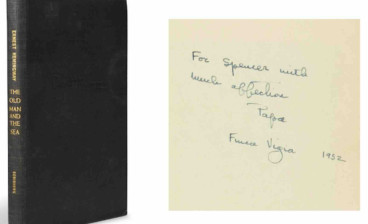 ERNEST HEMINGWAY
THE
OLD
MAN
AND
THE
SEA
For Spencer with
much affection
Papa
Finca Vigia 1952